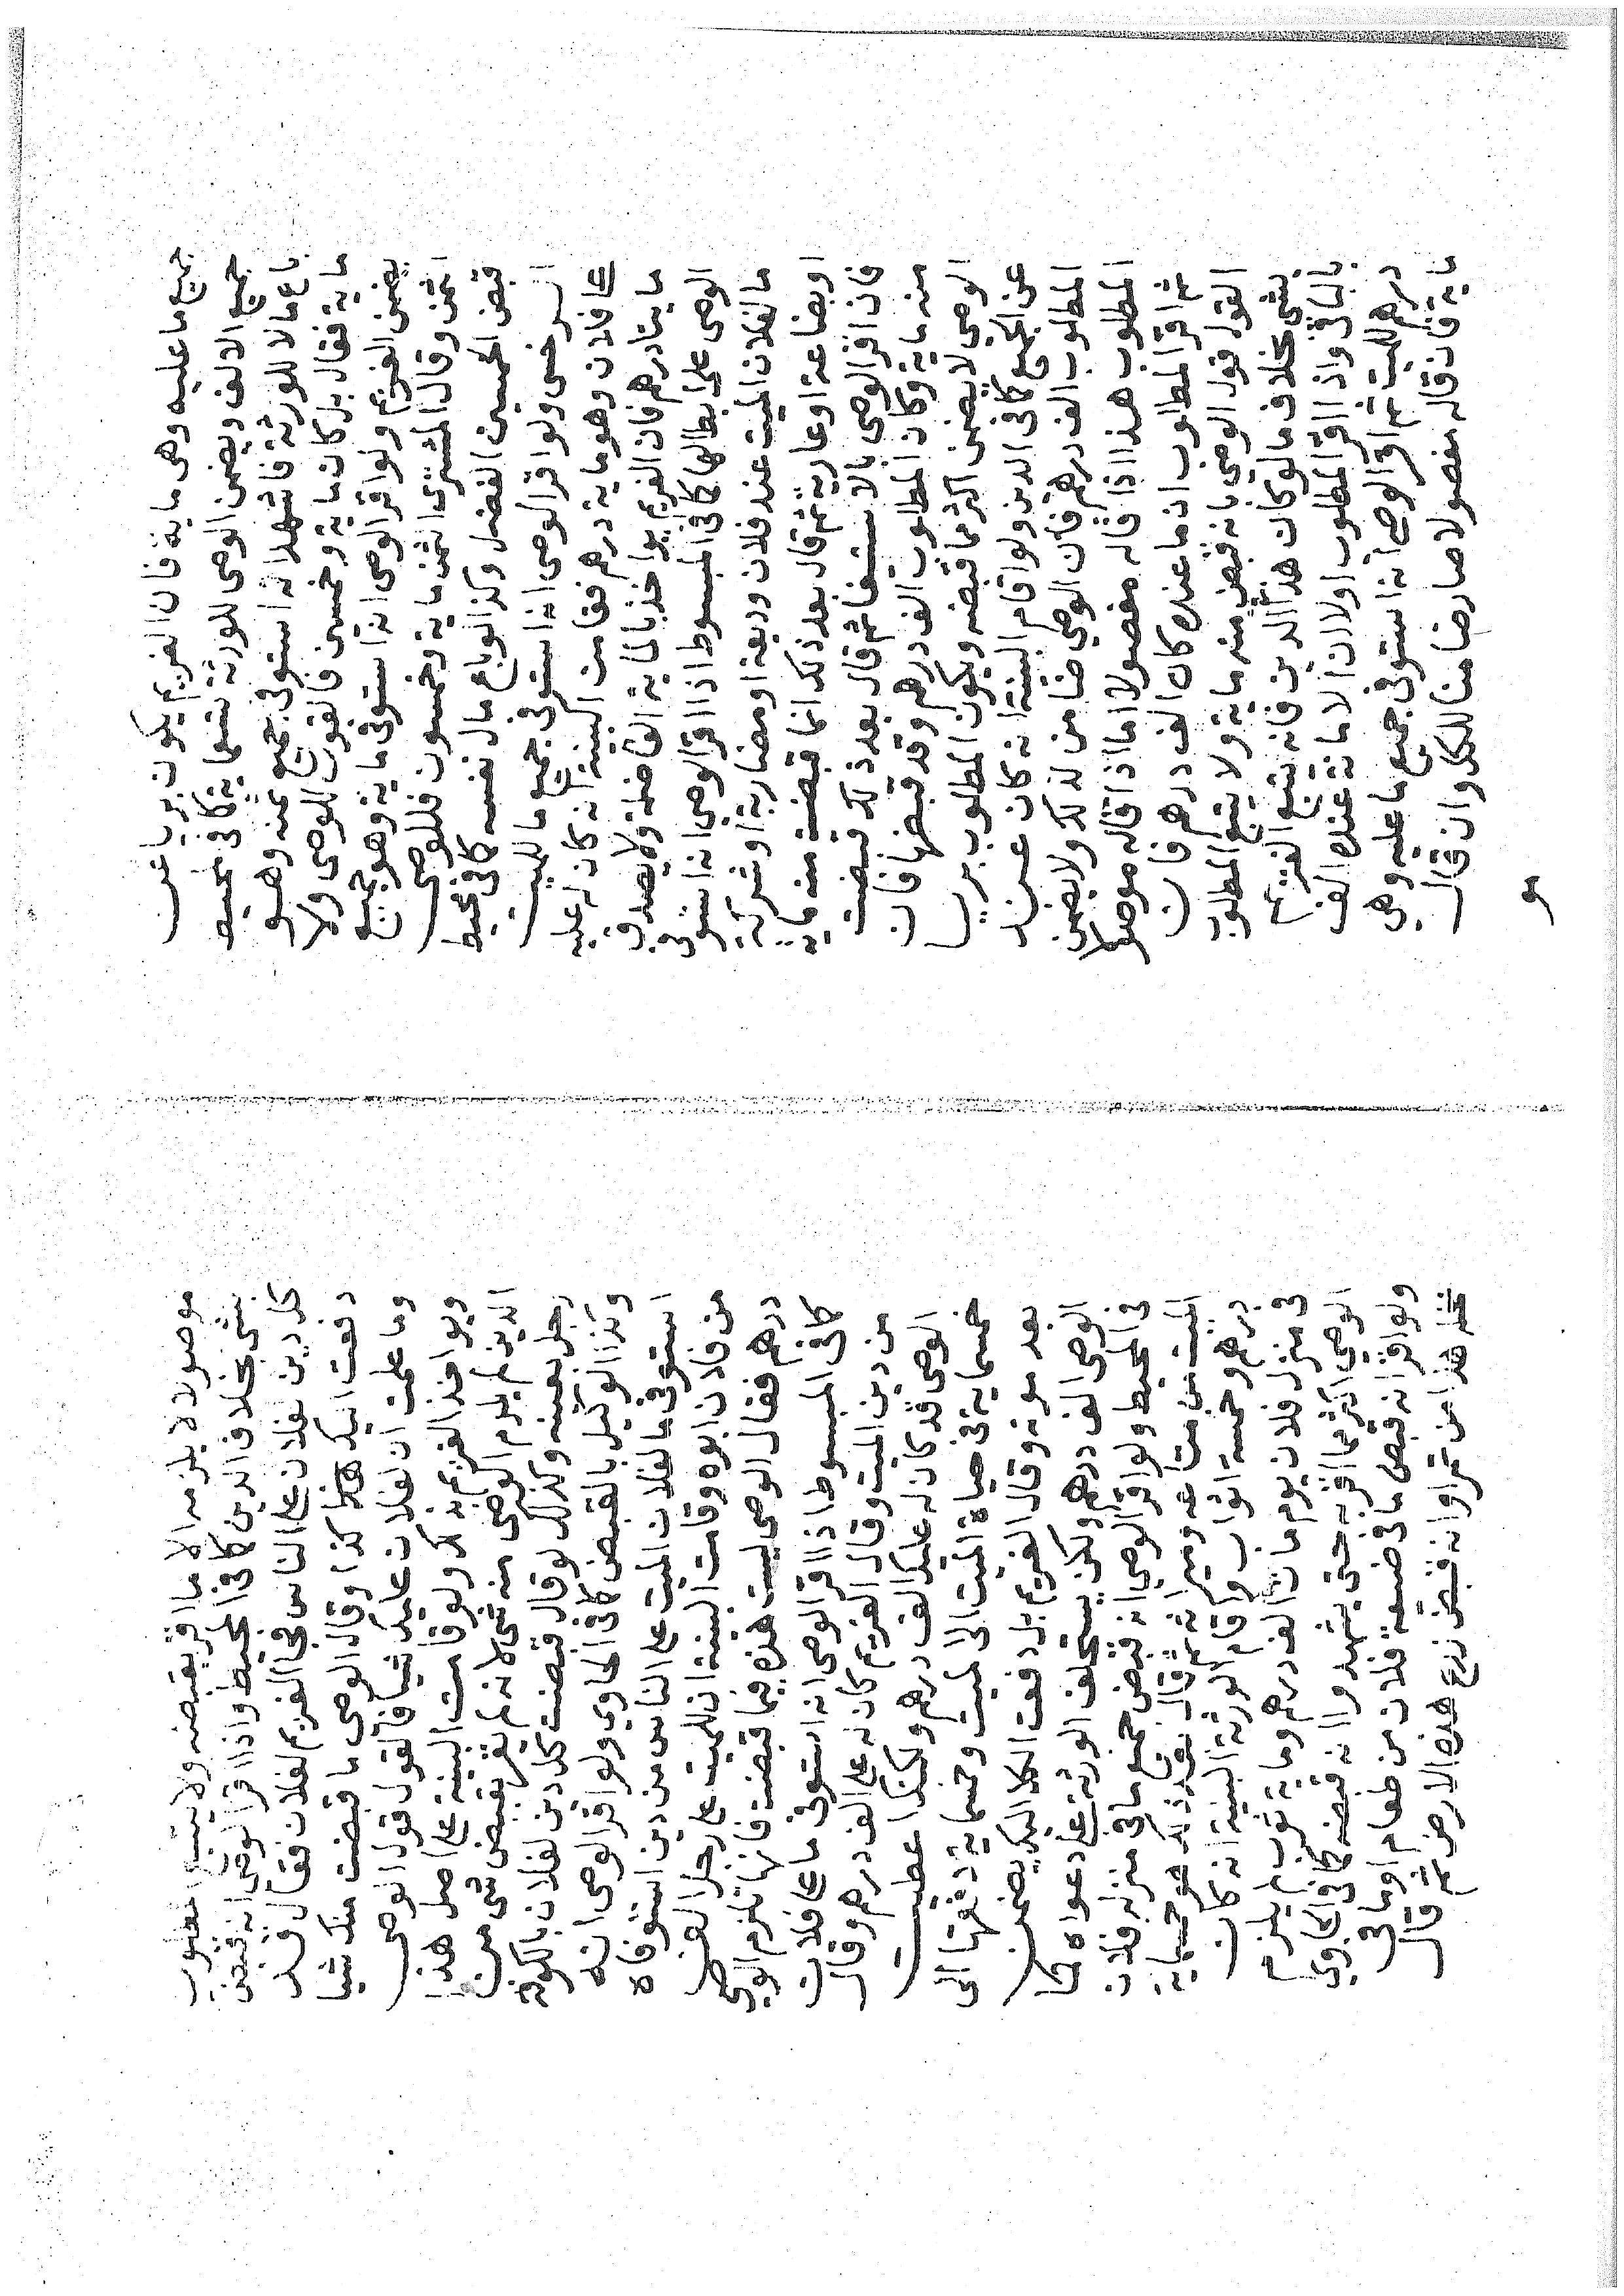 جميع ما عليه وهى ماية فان الغريم يكون بريا عن
جميع الالف ويضمن الوصى للورثة تسعماية كافى المحيط
باع مالا للورثة فاشهد انه استوفى جميع ثمنه وهو
ماية فقال بل كان ماية وخمسين فالقول للوصى ولا
يضمن الغريم ولو اقر الوصى انه استوفى ماية وهو جميع
الثمن وقال المشترى الثمن ماية وخمسون فللوصى
قبض الخمسين الفضل وكذا لو باع مال نفسه كافى محيط
السرخسى ولو اقر الوصى انه استوفى جميع ما للميت
على فلان وهو ماية درهم فقامت البينة انه كان له عليه
مايتا درهم فان الغريم يواخذ بالماية الفاضلة ولا يصدق
الوصى على ابطالها كافى المبسوط اذا اقر الوصى انه استوفى
ما لفلان الميت عند فلان وديعة او مضاربة او شركة
او بضاعة او عارية ثم قال بعد ذلك انما قبضت منه ماية
فان اقر الوصى بالاستيفا ثم قال بعد ذلك قبضت
منه ماية وكان المطلوب الف درهم وقد قبضها فان
الوصى لا يضمن اكثر مما قبضه ويكون المطلوب بريا
عن الجميع كافى الدين ولو اقام البينة انه كان عند
المطلوب الف درهم فان الوصى ضامن لذلك ولا يضمن
المطلوب هذا اذا قاله مفصولا اما اذا قاله موصولا
ثم اقر المطلوب ان ما عنده كان الف درهم فان
القول قول الوصى بانه قبض منه ماية ولا يتبع المطلوب
بشى بخلاف ما لو كان هذا الدين فانه يتبع الغريم
بالباقى واذا اقر المطلوب اولا ان الامانة عنده الف
درهم للميت ثم اقر الوصى انه استوفى جميع ما عليه وهى
ماية فان قاله مفصولا صار ضامنا للكل وان قال
مو
موصولا لا يلزمه الا ما اقر بقبضه ولا يتبع المطلوب
بشى بخلاف الدين كافى المحيط واذا اقر الوصى انه قبض
كل دين لفلان على الناس فجا الغريم لفلان فقال قد
دفعت اليك كذا وقال الوصى ما قبضت منك شيا
وما علمت ان لفلان عليك شيا فالقول قول الوصى
ويواخذ الغريم بذلك ولو قامت البينة على اصل هذا
الدين لم يلزم الوصى منه شى لانه لم يقر بقبض شى من
رجل بعينه وكذلك لو قال قبضت كل دين لفلان بالكوفة
وكذا الوكيل بالقبض كافى الحاوى ولو اقر الوصى انه
استوفى ما لفلان الميت على الناس من دين استوفاه
من فلان ابوه وقامت البينة ان للميت على رجل الف
درهم فقال الوصى ليست هذه فيما قبضت فانها تلزم الوصى
كافى المبسوط اذا اقر الوصى انه استوفى ما على فلان
من دين الميت وقال الغريم كان له على الف درهم وقال
الوصى قد كان له عليك الف درهم ولكنك اعطيت
خمسماية فى حياة الميت الى الميت وخمسماية دفعتها الى
بعد موته وقال الغريم بل دفعت الكل اليك يضمن
الوصى الف درهم ولكن يستحلف الورثة على دعواه كما
فى المحيط ولو اقر الوصى انه قبض جميع ما فى منزل فلان
الميت من متاعه وميراثه ثم قال بعد ذلك هو خمسماية
درهم وخمسة اثواب واقام الورثة البينة انه كان
فى منزل فلان يوم مات الف درهم وماية ثوب لم يلزم
الوصى اكثر مما اقر به حتى يشهدوا انه قبضه كافى الحاوى
ولو اقر انه قبض ما فى ضيعة فلان من طعام او ما فى
نخله هذا من تمر او انه قبض زرع هذه الارض ثم قال